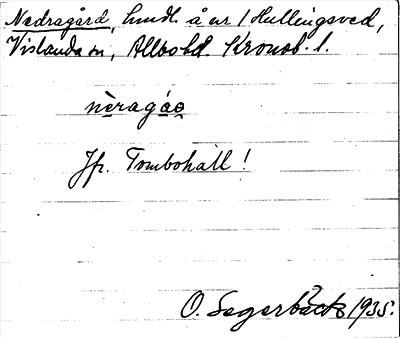 Nedragård, hmdl. å nr 1 Hullingsved,
Vislanda sn, Allbo hd. Kronob. l.
nèragá̱ṣ
Jfr. Tombohall!
O. Segerbäck 1935.